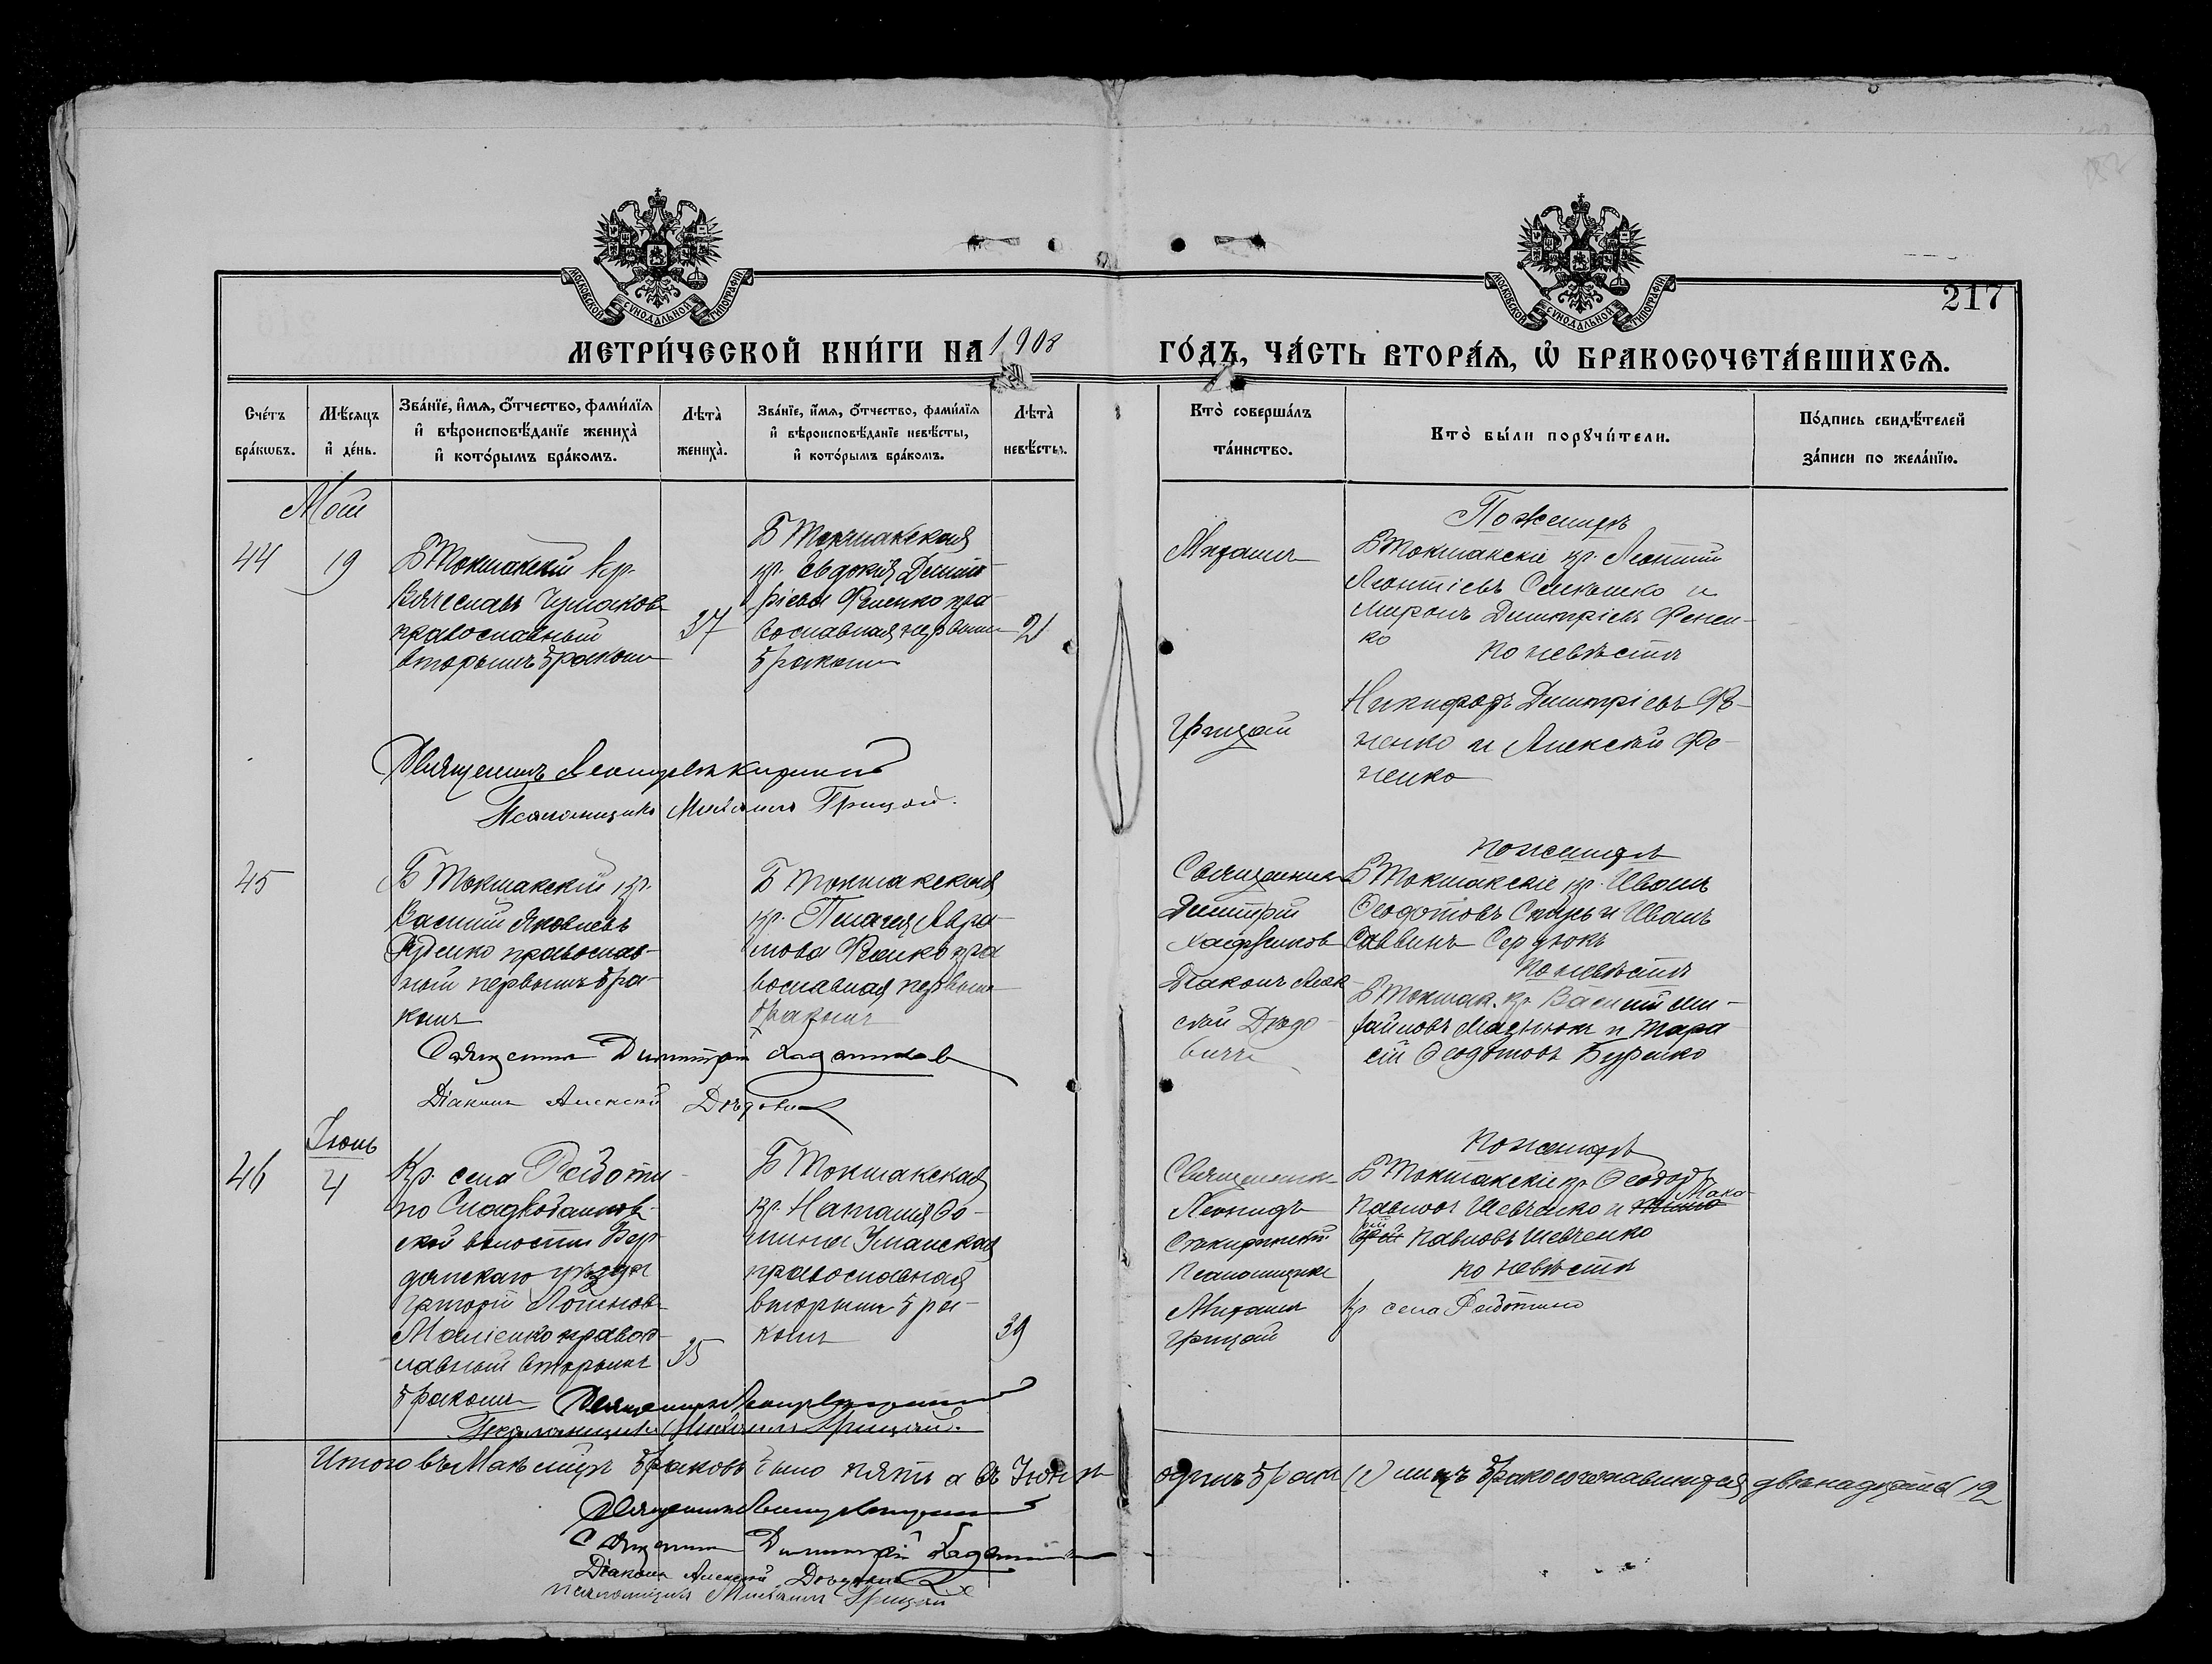 МОСКОВСКОЙ СУНОДАЛЬНОЙ ТИПОГРАФІИ
МОСКОВСКОЙ СУНОДАЛЬНОЙ ТИПОГРАФІИ
217
МЕТРИ́ЧЕСКОЙ КНИ́ГИ НА 1908 ГО́ДЪ, ЧА́СТЬ ВТОРА́Ѧ, Ѽ БРАКОСОЧЕТА́ВШИХСѦ.
Сче́тъ бра́кѡвъ.
Мѣ́сяцъ и҆ де́нь.
Зва́нїе, и҆́мѧ, ѻ҆́тчество, фами́лїѧ и҆ вѣроисповѣ́данїе жениха̀ и҆ кото́рымъ бра́комъ.
Лѣта̀ жениха̀.
Зва́нїе, и҆́мѧ, ѻ҆́тчество, фами́лїѧ и҆ вѣроисповѣ́данїе невѣ́сты, и҆ кото́рымъ бра́комъ.
Лѣта̀ невѣ́сты.
Кто̀ соверша́лъ та́инство.
Кто̀ бы́ли порꙋчи́тели.
По́дпись свидѣ́телей за́писи по жела́нїю.
Май
44
19
Б Токмакскій кр.
Вячеславъ Чумаковъ
православный
вторымъ бракомъ
37
Б Токмакская
кр. Евдокія Димит-
ріева Фененко пра-
вославная первымъ
бракомъ
21
Михаилъ
Грицай
По женихѣ
Б Токмакскіе кр. Леонтій
Леонтіевъ и
Миронъ Димитріевъ Фенен-
ко
По невѣстѣ
Никифоръ Димитріевъ Фе-
ненко и Алексѣй Фе-
ненко
Священникъ Леонидъ
Псаломщикъ Михаилъ Грицай.
45
Б Токмакскій кр.
Василій Яковлевъ
православ-
ный первымъ бра-
комъ
Б Токмакская
кр. Пелагея
Фененко пра
вославная первымъ
бракомъ
Священникъ
Димитрій
Діаконъ Алек-
сѣй Дѣдо-
вичъ
По женихѣ
Б Токмакскіе кр. Иванъ
Ѳеодотовъ и Иванъ
Саввинъ Сердюкъ
По невѣстѣ
Б Токмак. кр. Василій Ми-
хайловъ и Тара
сій Ѳеодотовъ
Священникъ Димитрій
Діаконъ Алексѣй Дѣдовичъ
Іюнь
46
4
Кр. села
по
ской волости Бер-
дянскаго уѣзда
Григорій
православ-
лавный вторымъ
бракомъ
35
Б Токмакская
кр. Наталія Ѳо-
мина Уманская
православная
вторымъ бра-
комъ
39
Священникъ
Леонидъ
Псаломщикъ
Михаилъ
Грицай
По женихѣ
Б Токмакскіе кр. Ѳеодоръ
Павловъ Шевченко и Мака-
рій Павловъ Шевченко
По невѣстѣ
Кр села
Священникъ Леонидъ
Псаломщикъ Михаилъ Грицай.
Итого въ Маѣ мѣсяцѣ браковъ было пять а въ Іюнѣ одинъ бракъ (1) лицъ бракосочетавшихся двѣнадцать 12
Священникъ Леонидъ
Священникъ Димитрій
Діаконъ Алексѣй Дѣдовичъ
Псаломщикъ Михаилъ Грицай